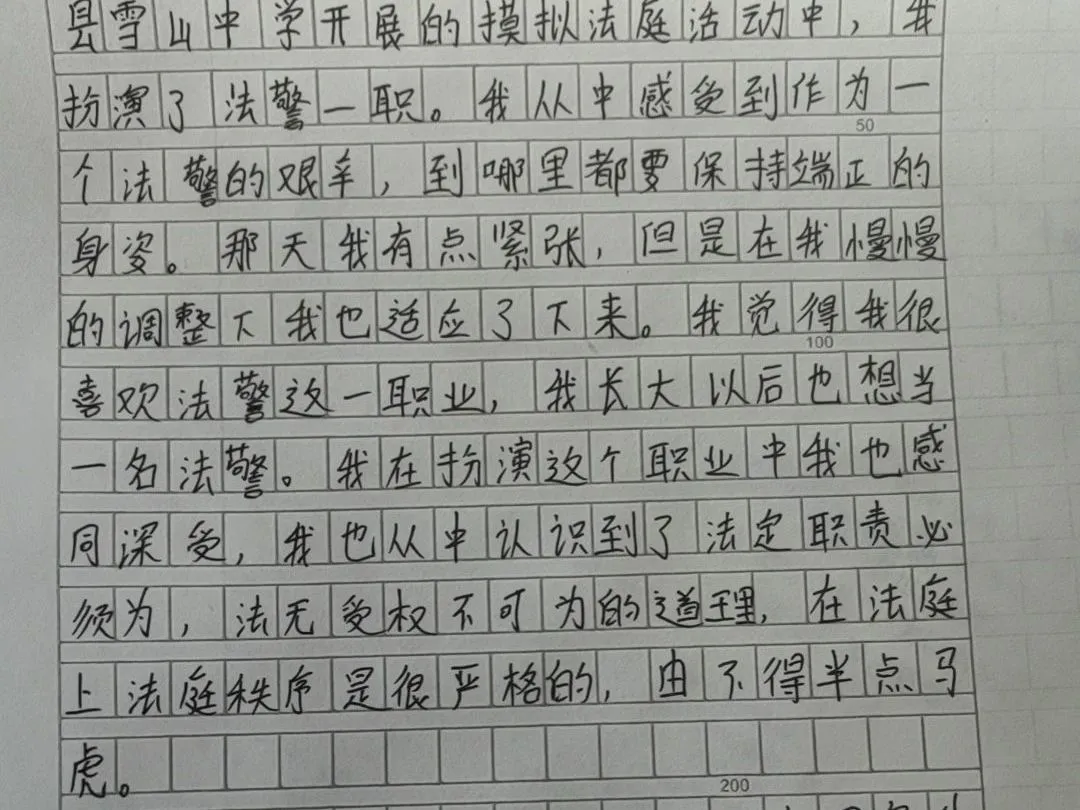 县雪山中学开展的摸拟法庭活动中，我
扮演了法警一职。我从中感受到作为一
50
个法警的艰辛，到哪里都要保持端正的
身姿。那天我有点紧张，但是在我慢慢
的调整下我也适应了下来。我觉得我很
100
喜欢法警这一职业，我长大以后也想当
一名法警。我在扮演这个职业中我也感
同深受，我也从中认识到了法定职责必
须为，法无受权不可为的道理，在法庭
上法庭秩序是很严格的，由不得半点马
虎。
200